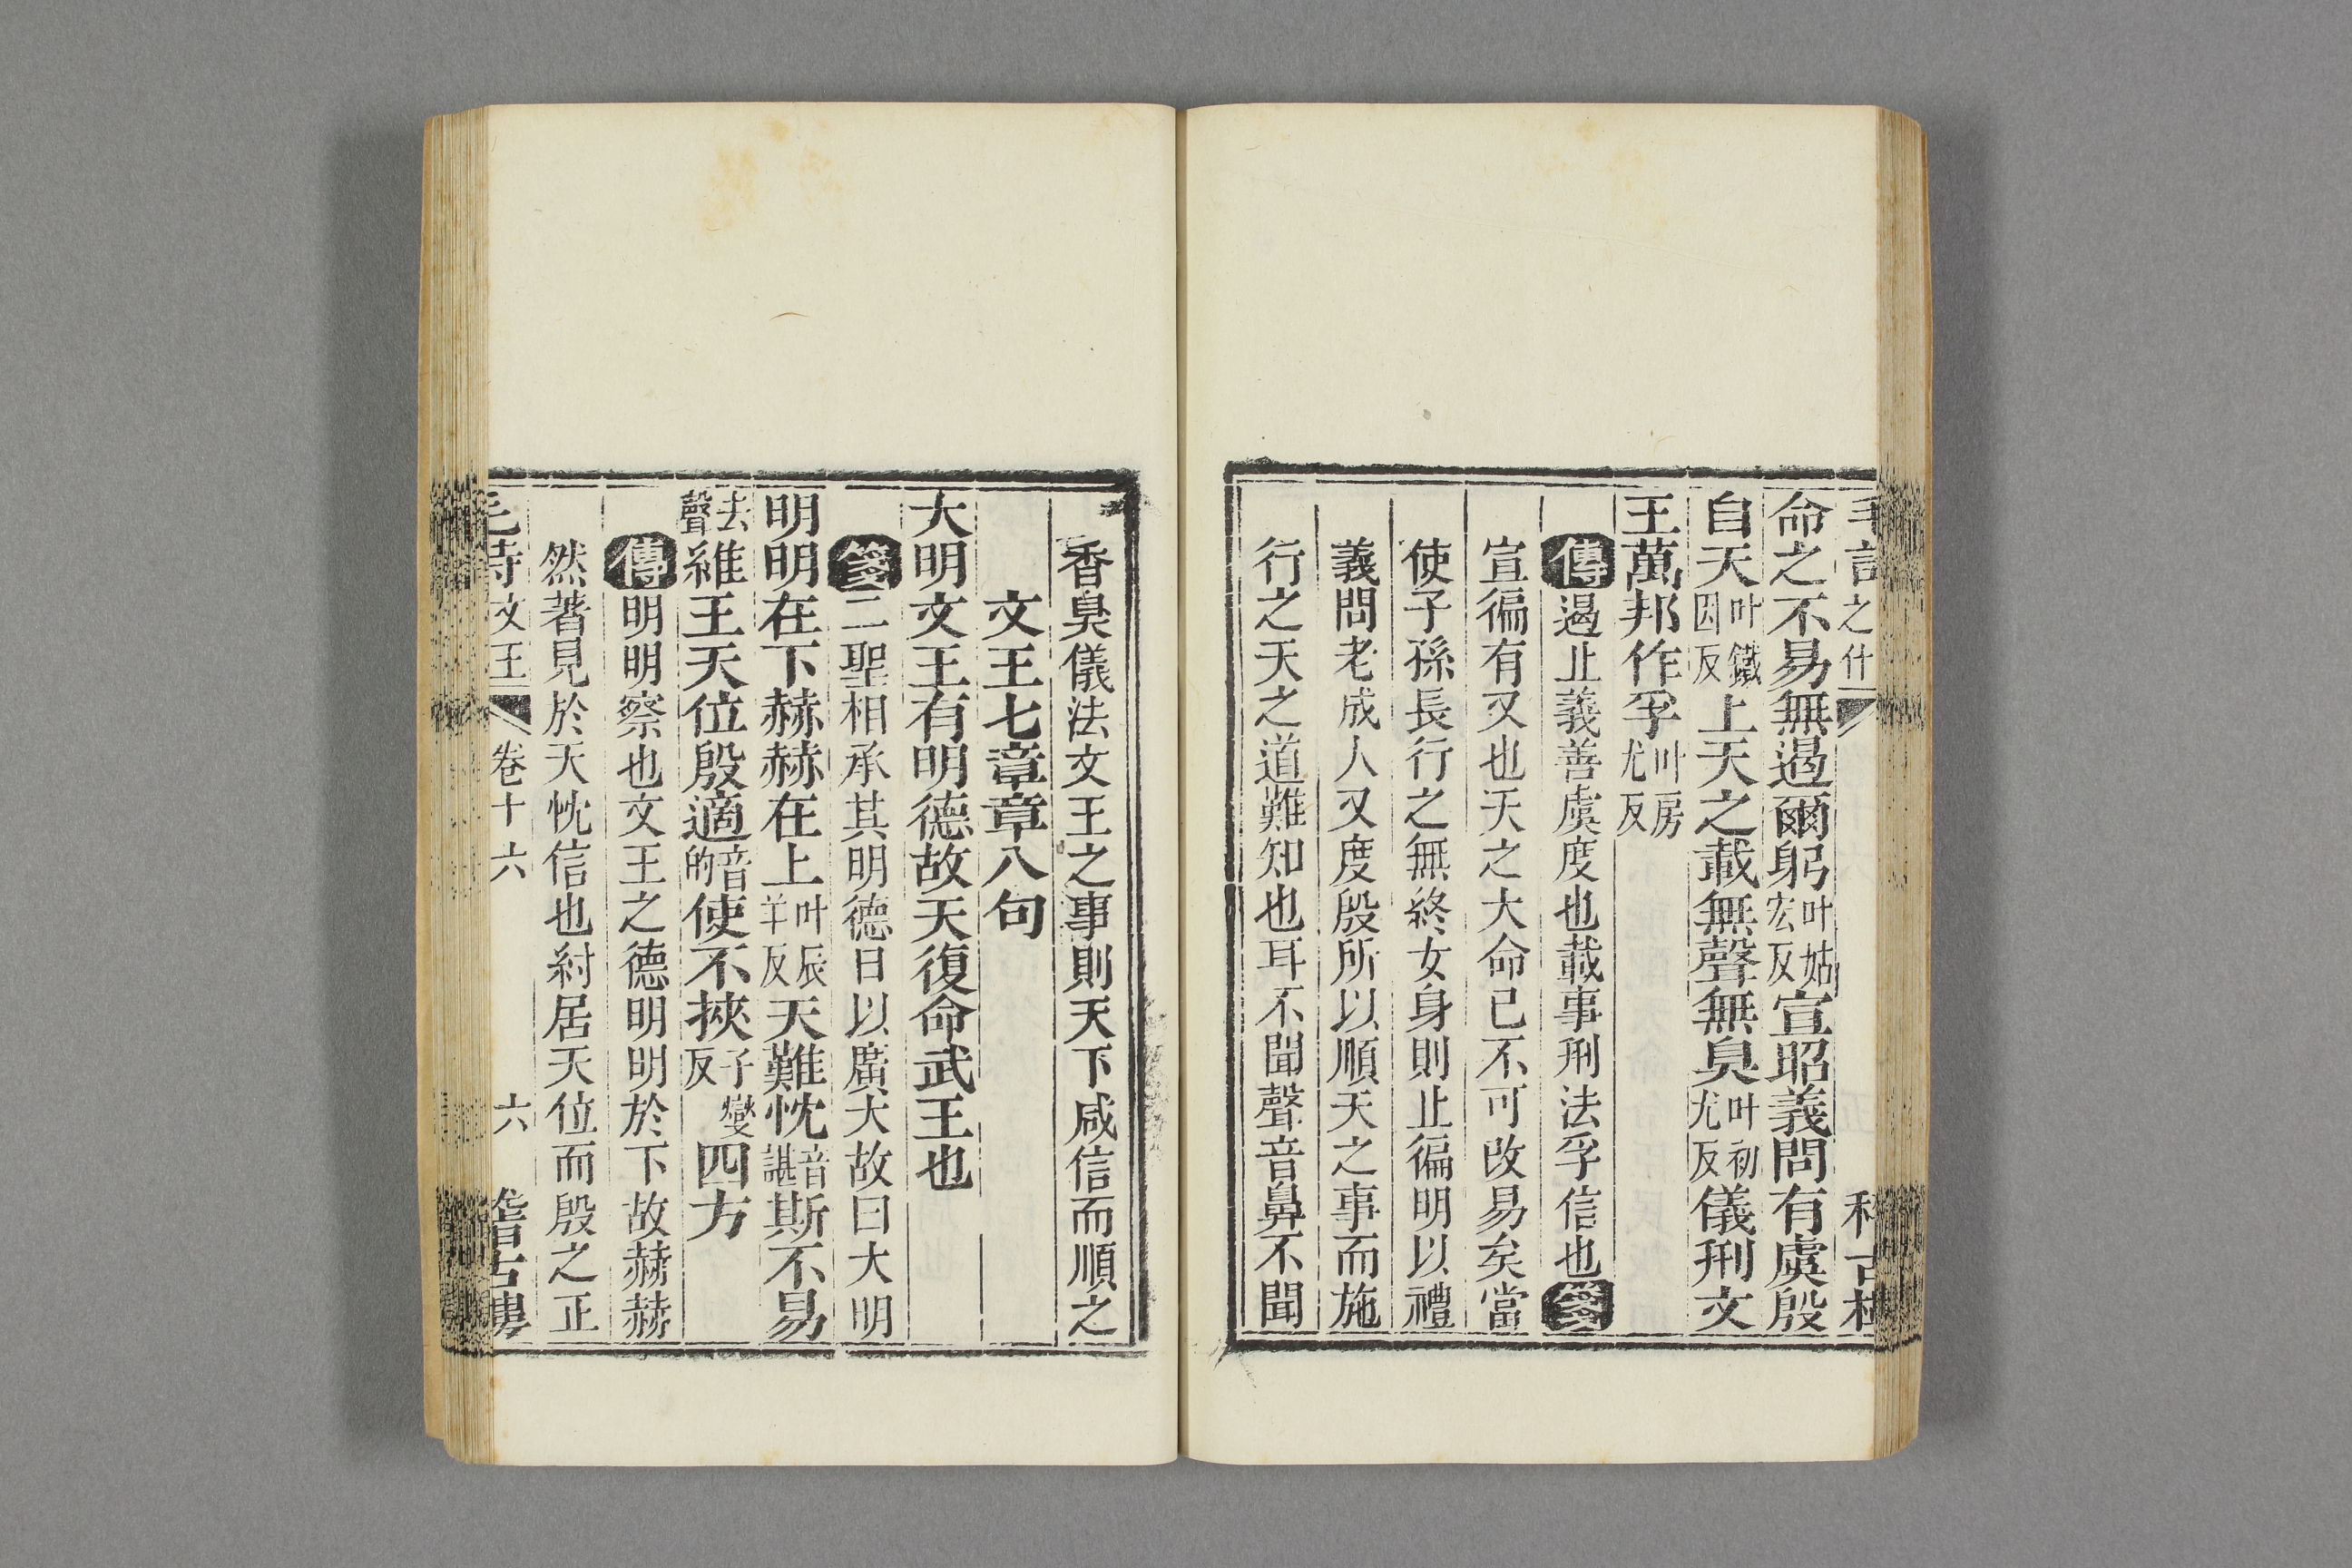 命之不易無遏爾躬叶姑宏反宣昭義問有虞殷
自天叶鐵因反上天之載無聲無臭叶初尤反儀刑文
王萬邦作孚叶房尤反
傳遏止義善虞度也載事刑法孚信也箋
宣徧有又也天之大命已不可改易矣當
使子孫長行之無終女身則止徧明以禮
義問老成人又度殷所以順天之事而施
行之天之道難知也耳不聞聲音鼻不聞
香臭儀法文王之事則天下咸信而順之
文王七章章八句
大明文王有明德故天復命武王也
箋二聖相承其明德日以廣大故曰大明
明明在下赫赫在上叶辰羊反天難忱音諶斯不易
去聲維王天位殷適音的使不挾子燮反四方
傳明明察也文王之德明明於下故赫赫
然著見於天忱信也紂居天位而殷之正
毛詩文王 卷十六 六